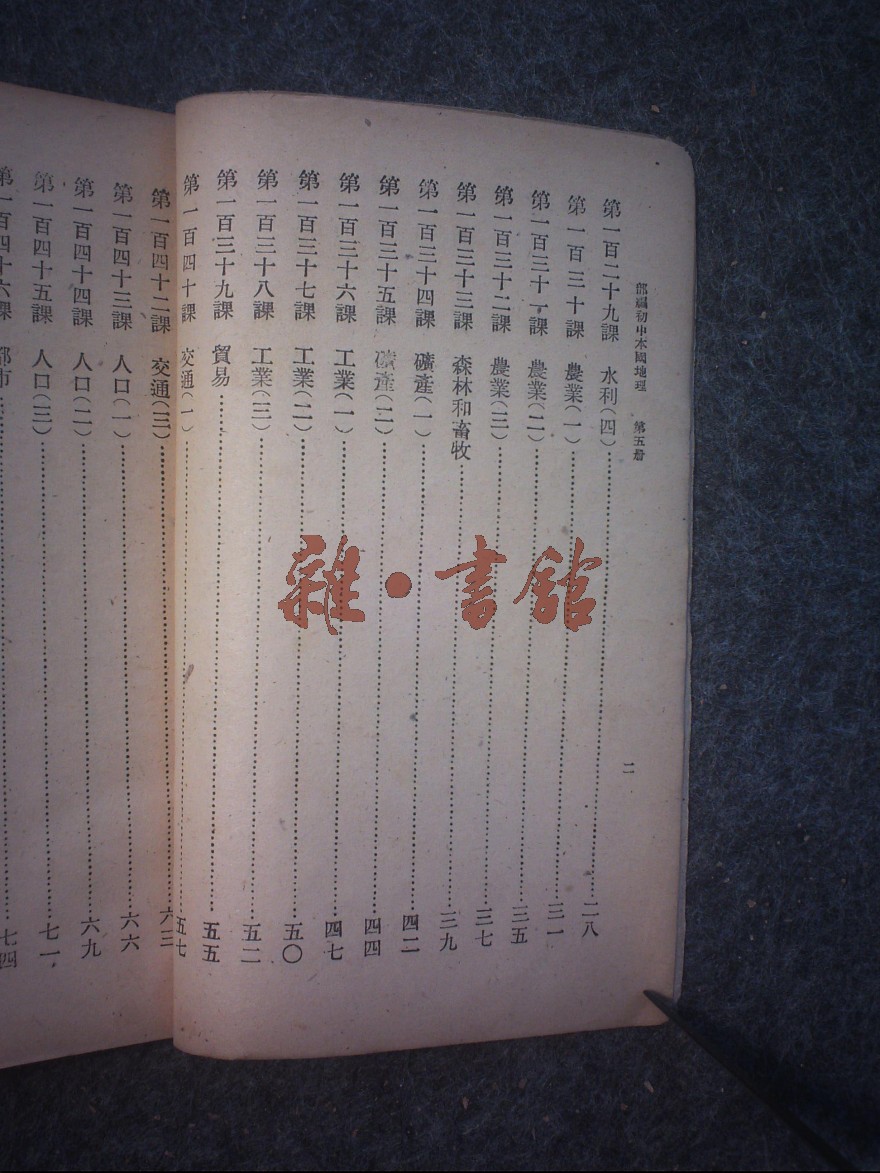 部編初中本國地理 第五册
二
第一百二十九課 水利(四)……二八
第一百三十課 農業(一)……三一
第一百三十一課 農業(二)……三五
第一百三十二課 農業(三)……三七
第一百三十三課 森林和畜牧……三九
第一百三十四課 礦產(一)……四二
第一百三十五課 礦產(二)……四四
第一百三十六課 工業(一)……四七
第一百三十七課 工業(二)……五〇
第一百三十八課 工業(三)……五二
第一百三十九課 貿易……五五
第一百四十課 交通(一)……五七
第一百四十二課 交通(三)……六三
第一百四十三課 人口(一)……六六
第一百四十四課 人口(二)……六九
第一百四十五課 人口(三)……七一
第一百四十六課 都市……七四
雜·書館